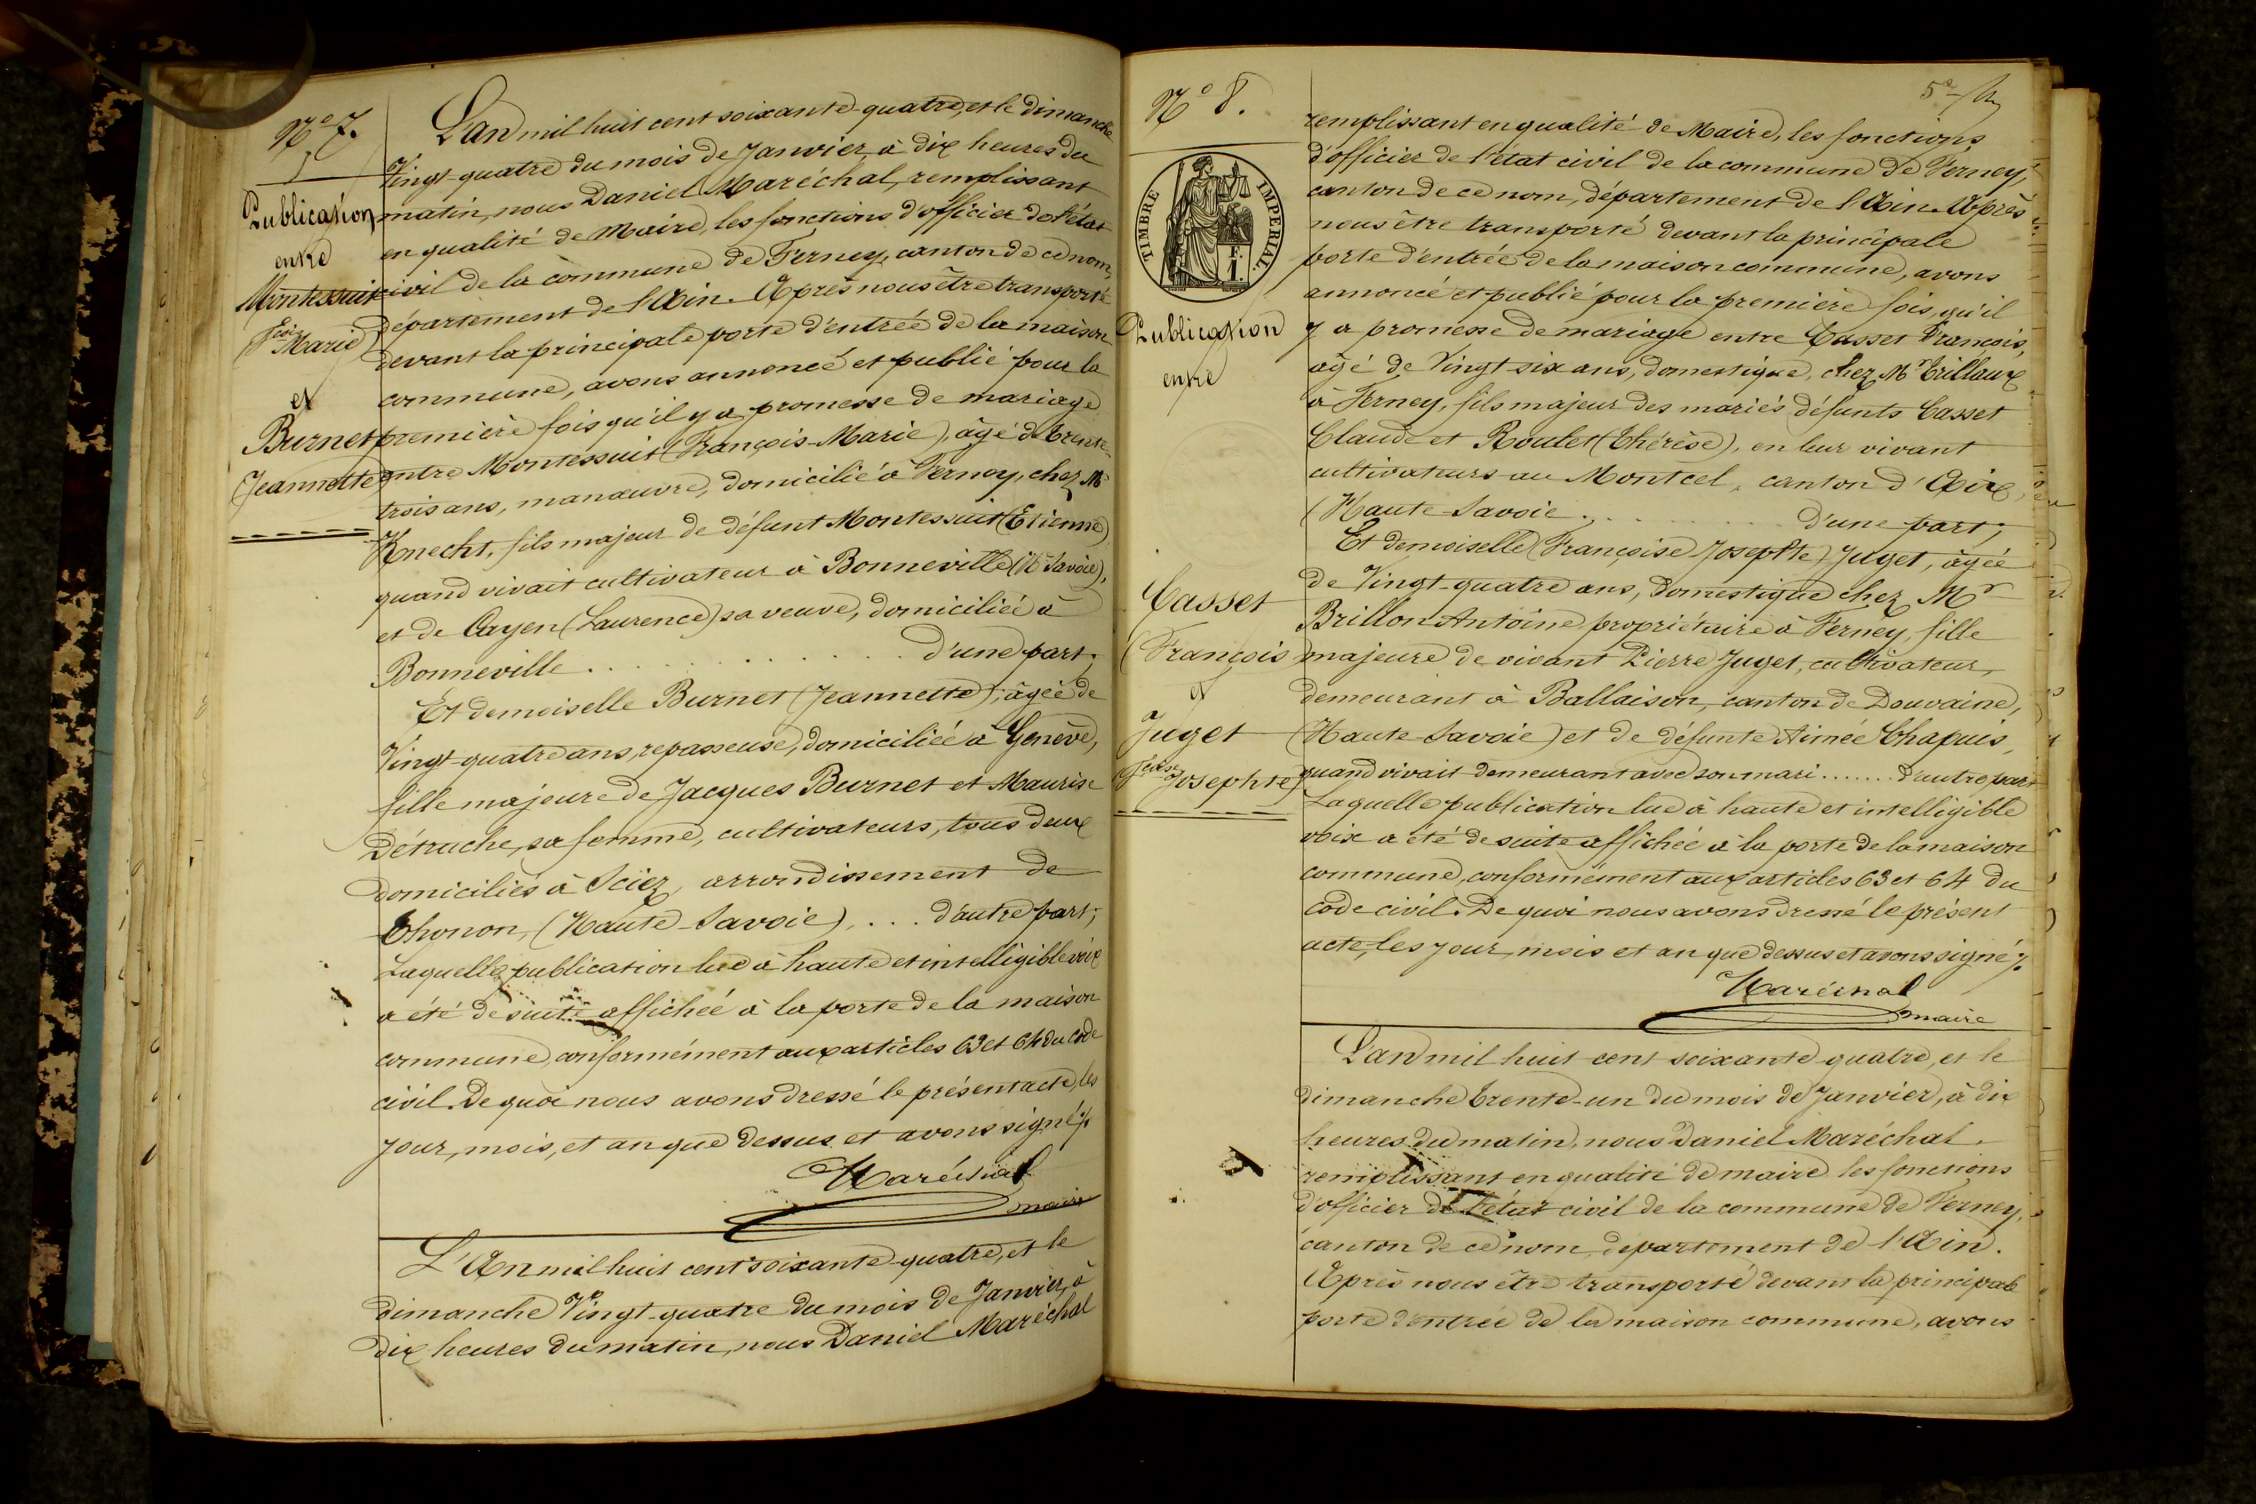 Nº 7.
Publication
entre
Montessuit
(Fçois Marie)
et
Burnet
(Jeannette)
L'an mil huit cent soixante-quatre, et le dimanche
Vingt-quatre du mois de Janvier, à dix heures du
matin, nous Daniel Maréchal, remplissant
en qualité de Maire, les fonctions d'officier de l'état
civil de la commune de Ferney, canton de ce nom,
département de l'Ain. Après nous être transporté
devant la principale porte d'entrée de la maison
commune, avons annoncé et publié pour la
première fois qu'il y a promesse de mariage
entre Montessuit (François-Marie), âgé de trente-
trois ans, manœuvre, domicilié à Ferney, chez Mr
Knecht, fils majeur de défunt Montessuit (Etienne)
quand vivait cultivateur à Bonneville (Hte Savoie),
et de Cayen (Laurence) sa veuve, domiciliée à
Bonneville . . . . . . . . . . d'une part;
Et demoiselle Burnet (Jeannette), âgée de
Vingt-quatre ans, repasseuse, domiciliée à Genève,
fille majeure de Jacques Burnet et Maurise
Détruche, sa femme, cultivateurs, tous deux
domiciliés à Sciez, arrondissement de
Thonon, (Haute-Savoie), . . . d'autre part;
Laquelle publication lue à haute et intelligible voix
a été de suite affichée à la porte de la maison
commune, conformément aux articles 63 et 64 du code
civil. De quoi nous avons dressé le présent acte, les
jour, mois, et an que dessus et avons signé /.
Maréchal
maire
L'An mil huit cent soixante-quatre, et le
dimanche Vingt-quatre du mois de Janvier, à
dix heures du matin, nous Daniel Maréchal
5e
Nº 8.
TIMBRE IMPERIAL.
1 F.
Publication
entre
Casset
(François)
et
Juget
(Fçoise Josephte)
remplissant en qualité de Maire, les fonctions
d'officier de l'état civil de la commune de Ferney,
canton de ce nom, département de l'Ain. Après
nous être transporté devant la principale
porte d'entrée de la maison commune, avons
annoncé et publié pour la première fois, qu'il
y a promesse de mariage entre Casset François,
âgé de Vingt-six ans, domestique, chez Mr Trillaux
à Ferney, fils majeur des mariés défunts Casset
Claude et Roulet (Thérèse), en leur vivant
cultivateurs au Montcel, canton d'Aix,
(Haute-Savoie . . . . . . . . . d'une part;
Et demoiselle (Françoise Josephte) Juget, âgée
de Vingt-quatre ans, domestique chez Mr
Brillon Antoine propriétaire à Ferney, fille
majeure de vivant Pierre Juget, cultivateur,
demeurant à Ballaison, canton de Douvaine,
(Haute-Savoie) et de défunte Aimée Chapuis,
quand vivait demeurant avec son mari . . . . . . . d'autre part
Laquelle publication lue à haute et intelligible
voix a été de suite affichée à la porte de la maison
commune, conformément aux articles 63 et 64 du
code civil. De quoi nous avons dressé le présent
acte, les jour, mois et an que dessus et avons signé /.
Maréchal
maire
L'an mil huit cent soixante-quatre, et le
dimanche trente-un du mois de Janvier, à dix
heures du matin, nous Daniel Maréchal.
remplissant en qualité de maire les fonctions
d'officier de l'état civil de la commune de Ferney,
canton de ce nom, département de l'Ain.
Après nous être transporté devant la principale
porte d'entrée de la maison commune, avons